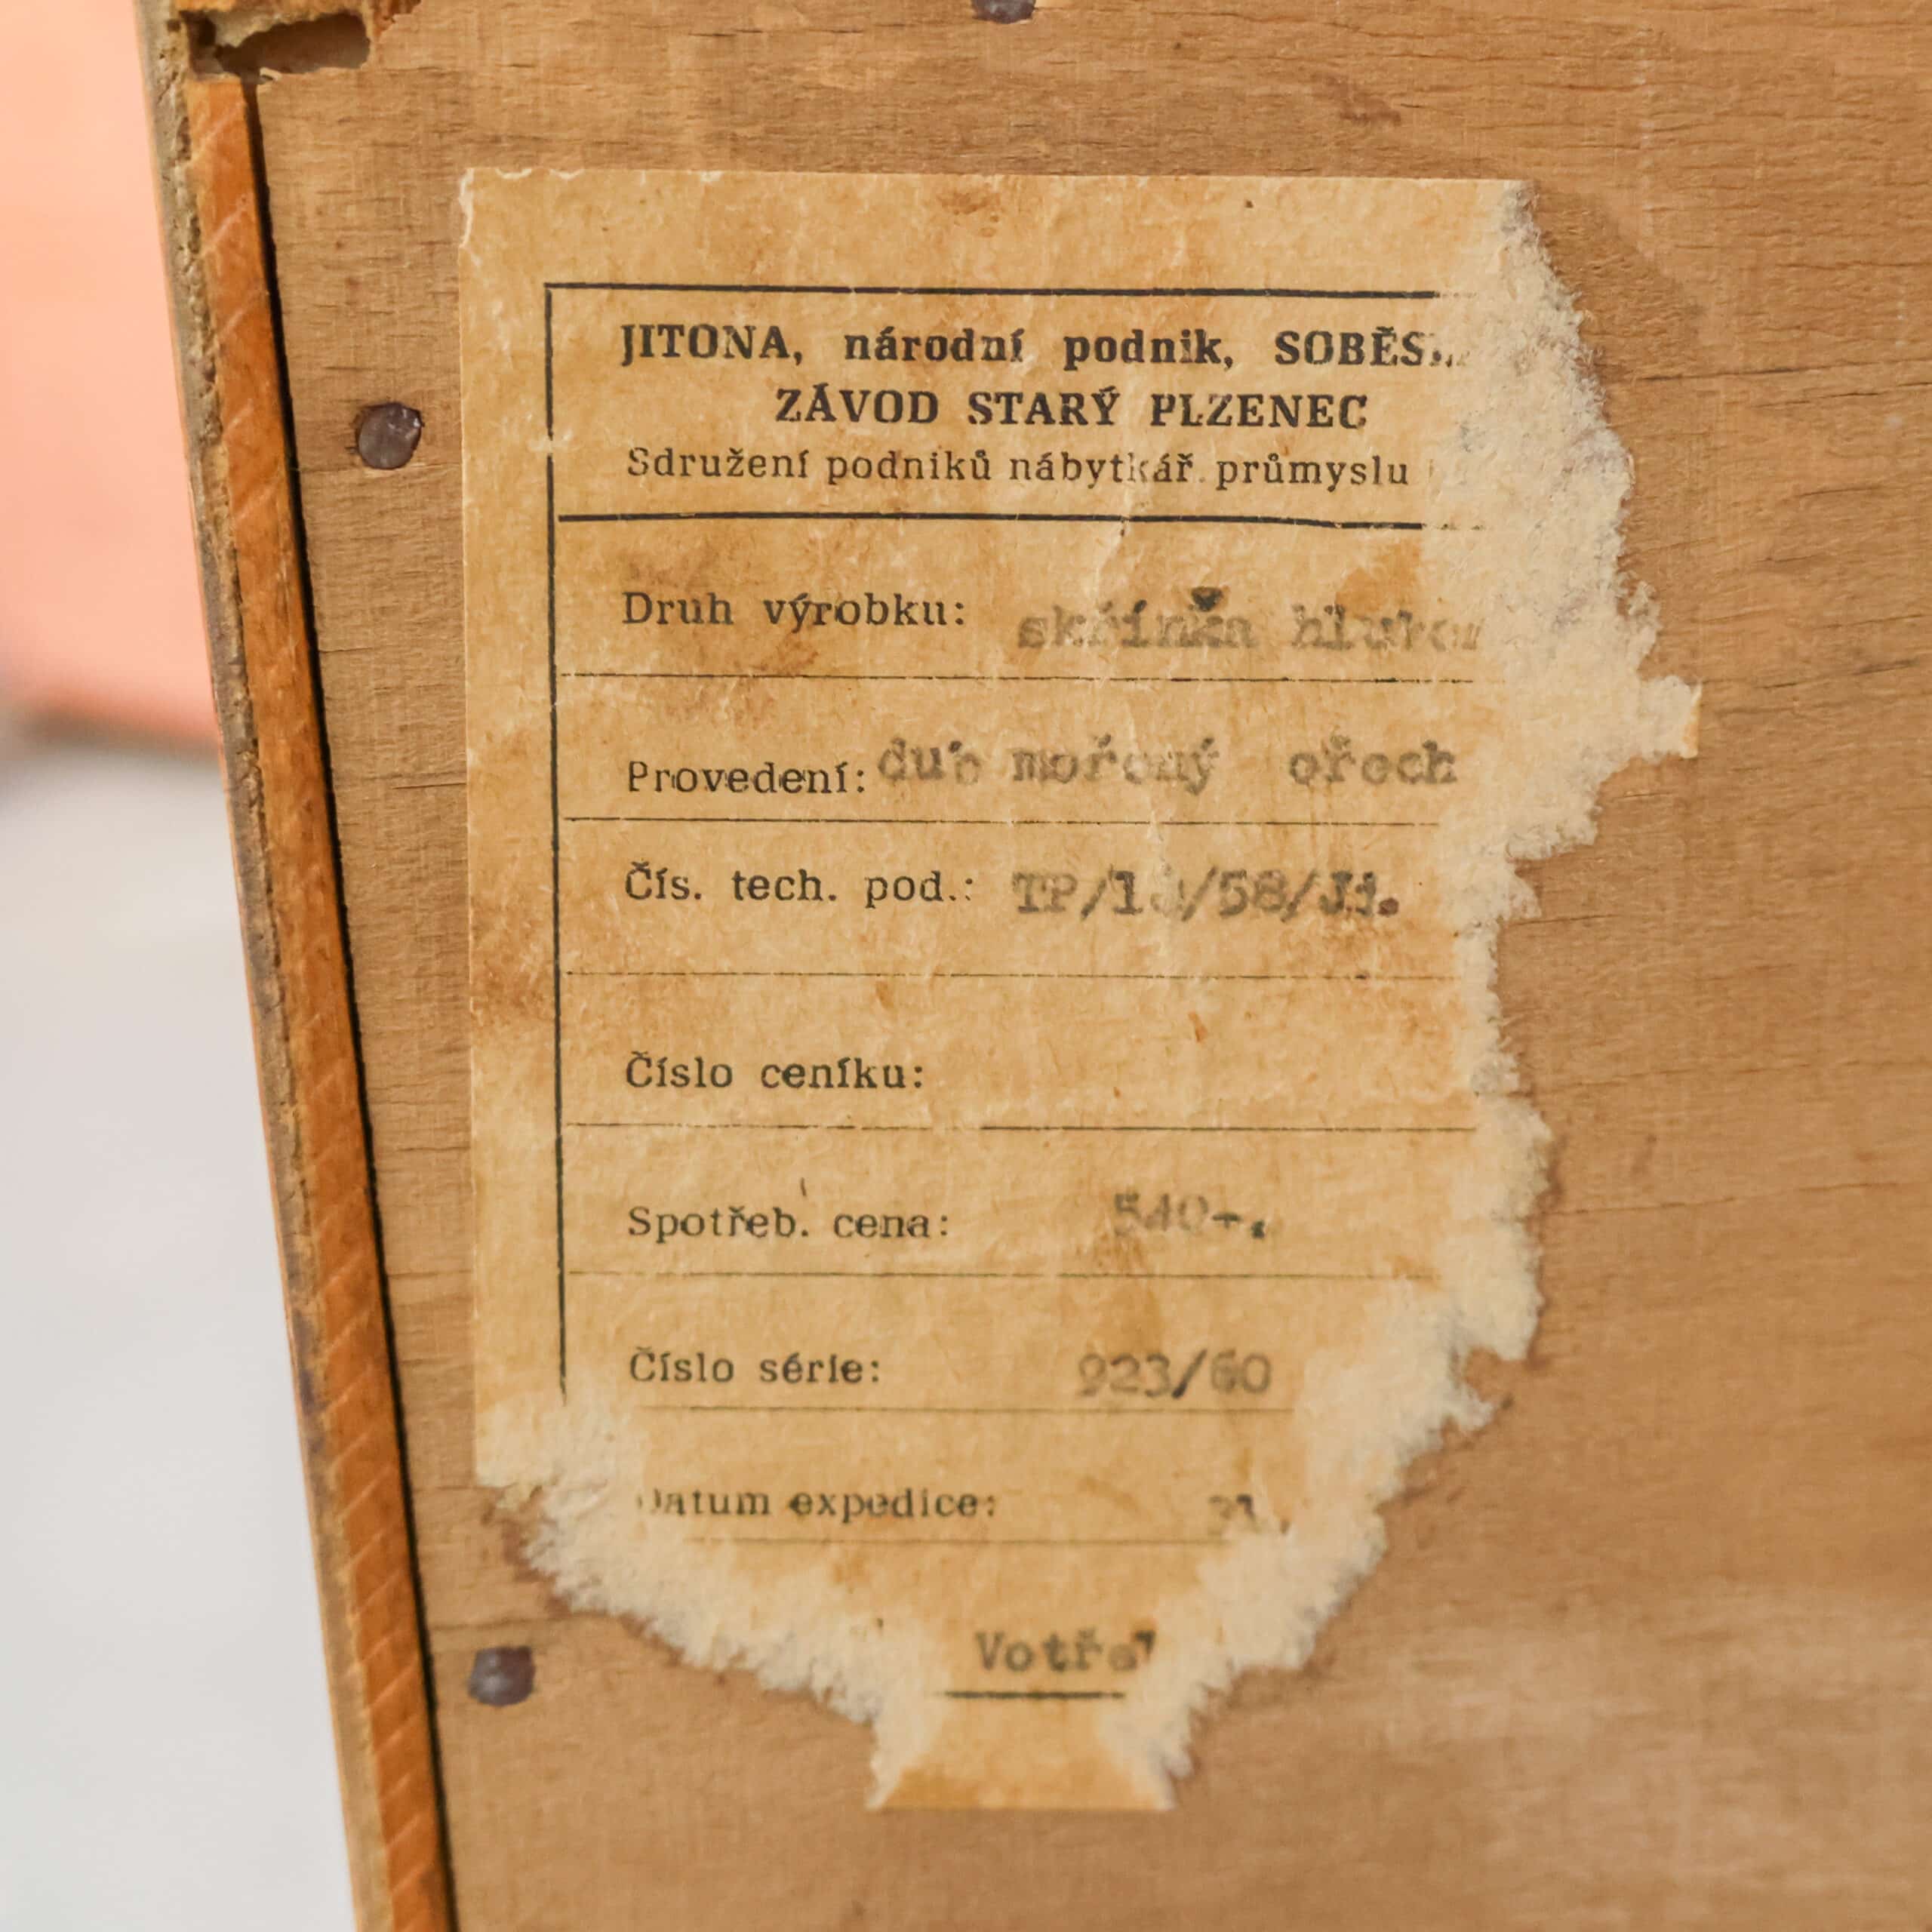 JITONA, národní podnik,
ZÁVOD STARÝ PLZENEC
Sdružení podniků nábytkář. průmyslu
Druh výrobku: skřínka
Provedení: dub mořený ořech
Čís. tech. pod.:
Číslo ceníku:
Spotřeb. cena: 540-.
Číslo série: 923/60
Datum expedice: